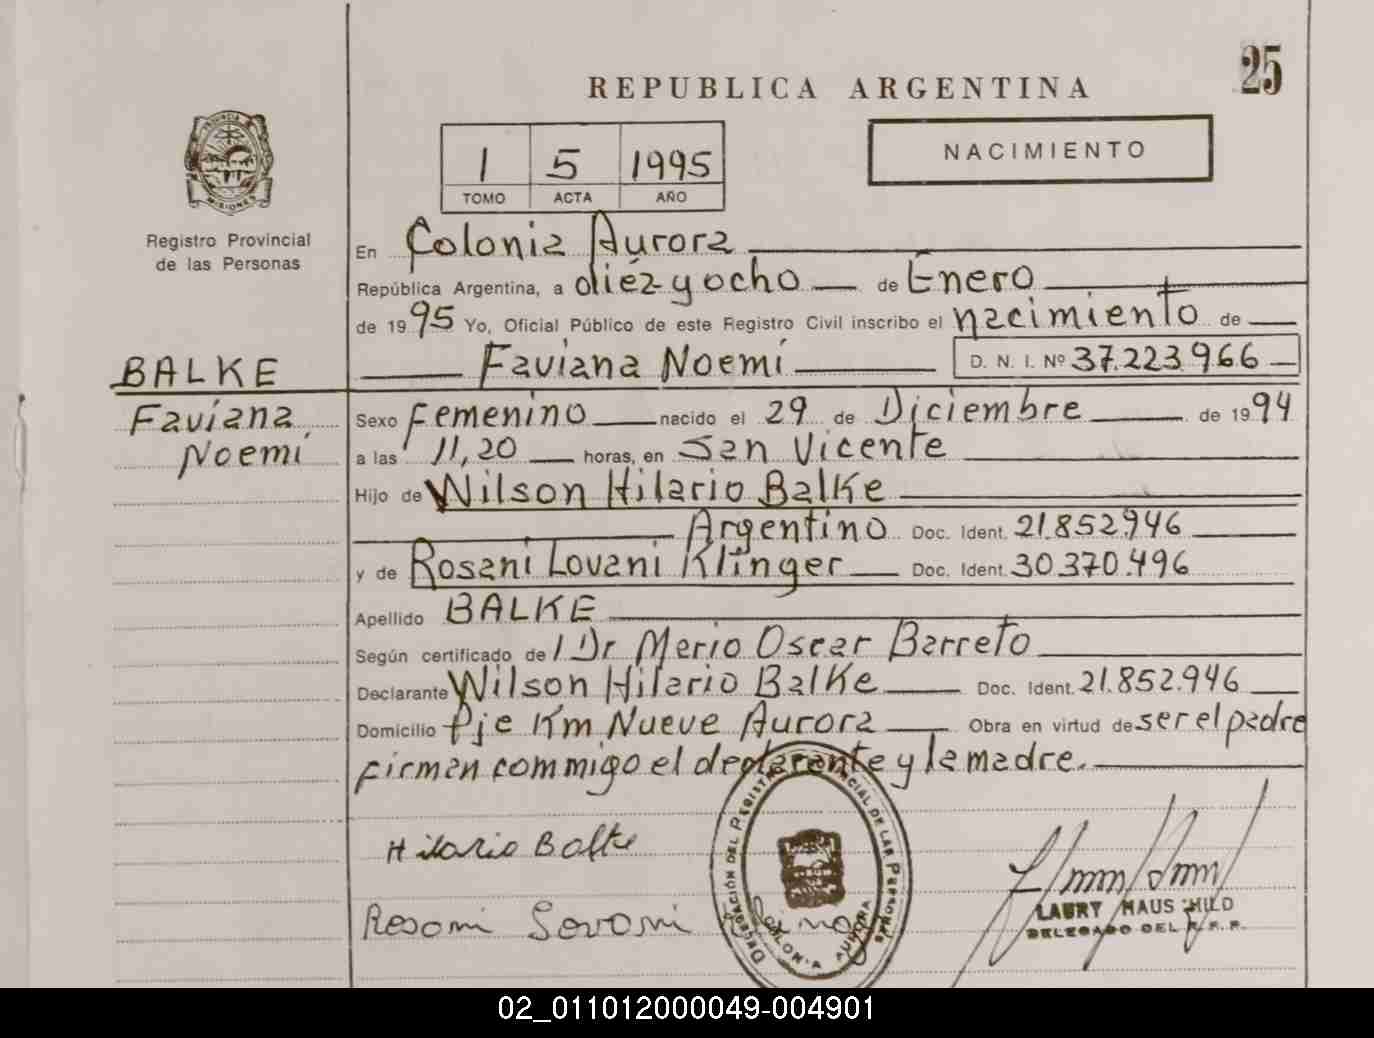 25
REPUBLICA ARGENTINA
1 5 1995
TOMO ACTA AÑO
NACIMIENTO
PROVINCIA DE
MISIONES
Registro Provincial
de las Personas
En Colonia Aurora
República Argentina, a diéz y ocho de Enero
de 1995 Yo, Oficial Público de este Registro Civil inscribo el nacimiento de
Faviana Noemí D. N. I. Nº 37.223.966
BALKE
Faviana
Noemí
Sexo femenino nacido el 29 de Diciembre de 1994
a las 11,20 horas, en San Vicente
Hijo de Wilson Hilario Balke
Argentino Doc. Ident. 21.852.946
y de Rosani Lovani Klinger Doc. Ident. 30.370.496
Apellido BALKE
Según certificado del Dr Merio Oscar Barreto
Declarante Wilson Hilario Balke Doc. Ident. 21.852.946
Domicilio Pje Km Nueve Aurora Obra en virtud de ser el padre
firman commigo el declarante y la madre.
Hilario Balke
Rosani Lovani
DELEGACIÓN DEL REGISTRO PROVINCIAL DE LAS PERSONAS
COLONIA AURORA
LAURY HAUSCHILD
DELEGADO DEL R.P.P.
02_011012000049-004901